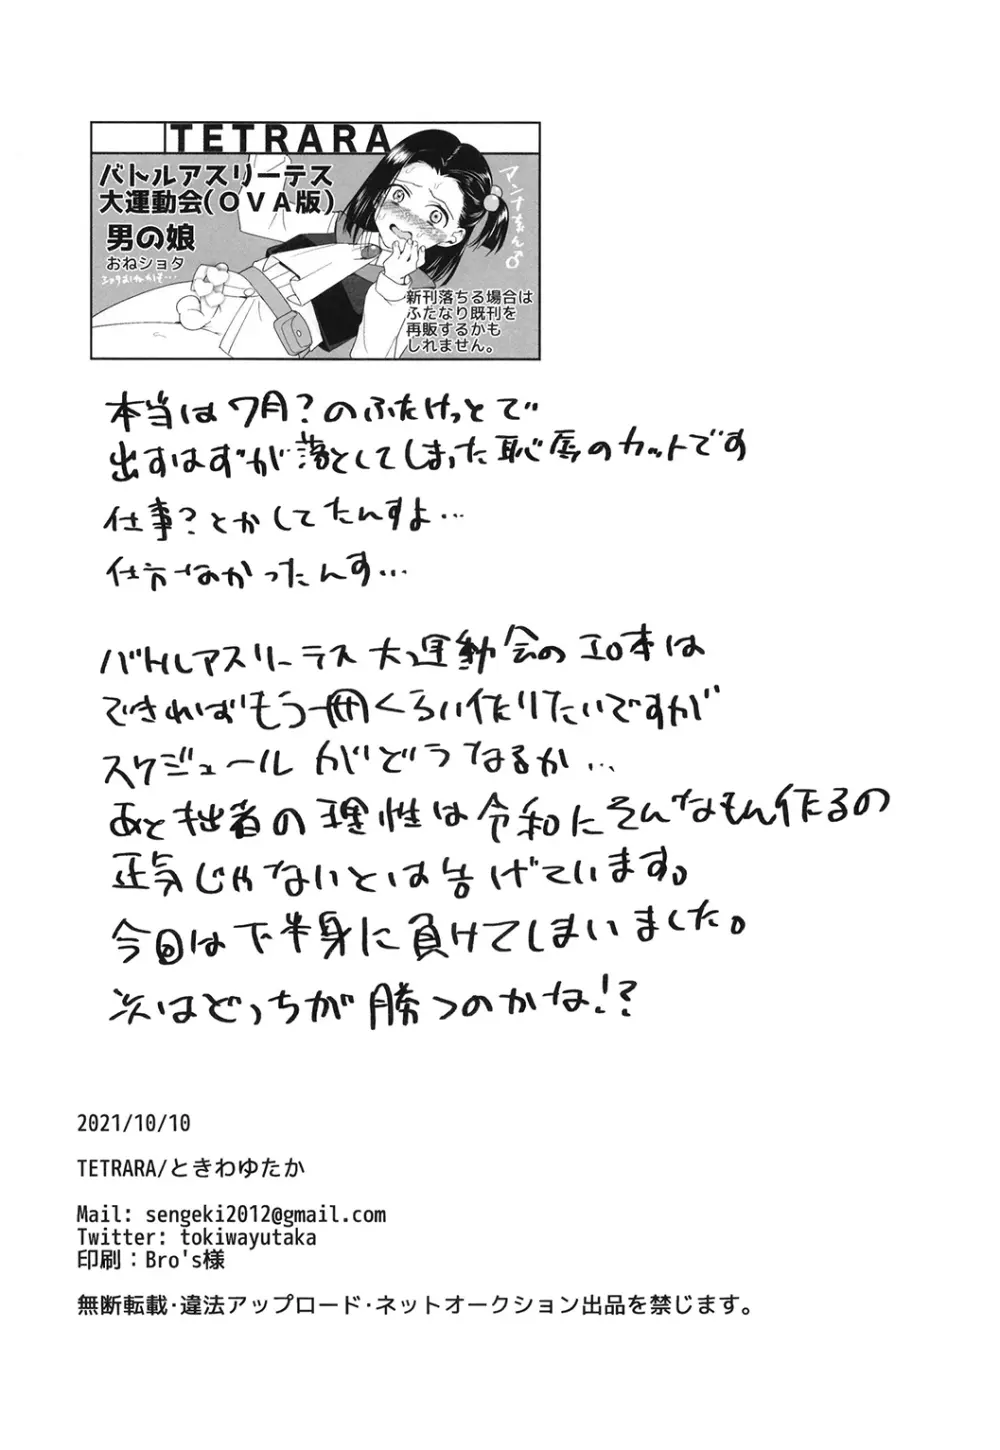 TETRARA
バトルアスリーテス
大運動会(OVA版)
男の娘
おねショタ
アンナちゃん♂
新刊落ちる場合は
ふたなり既刊を
再販するかも
しれません。
本当は7月?のふたけっとで
出すはずが落としてしまった恥辱のカットです
仕事?とかしてたんすよ…
仕方なかったんす…
バトルアスリーテス大運動会のエロ本は
できればもう一冊くらい作りたいですが
スケジュールがどうなるか…
あと拙者の理性は令和にそんなもん作るの
正気じゃないとは告げています。
今回は下半身に負けてしまいました。
次はどっちが勝つのかな!?
2021/10/10
TETRARA/ときわゆたか
Mail: sengeki2012@gmail.com
Twitter: tokiwayutaka
印刷：Bro's様
無断転載･違法アップロード･ネットオークション出品を禁じます。